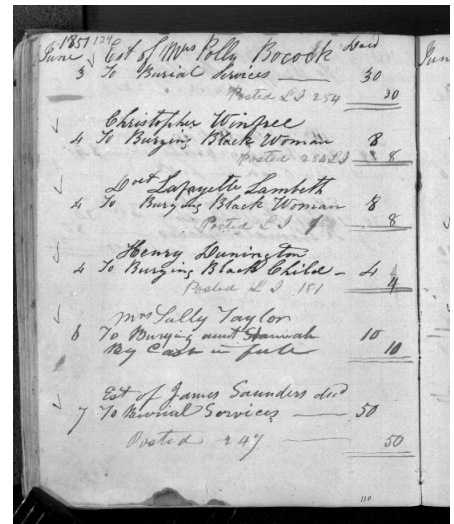 1851 124
June Est of Mrs Polly Bocock Dec'd
3 To Burial Services 30
Posted L I 254 30
Christopher Winfree
4 To Burying Black Woman 8
Posted 254 L I 8
Doct Lafayette Lambeth
4 To Burying Black Woman 8
Posted L I 8
Henry Dunington
4 To Burying Black Child - 4
Posted L I 151 4
Mrs Sally Taylor
6 To Burying aunt Hannah 10
By Cash in full 10
Est of James Saunders decd
7 To Burial Services 50
Posted 247 50
110
June